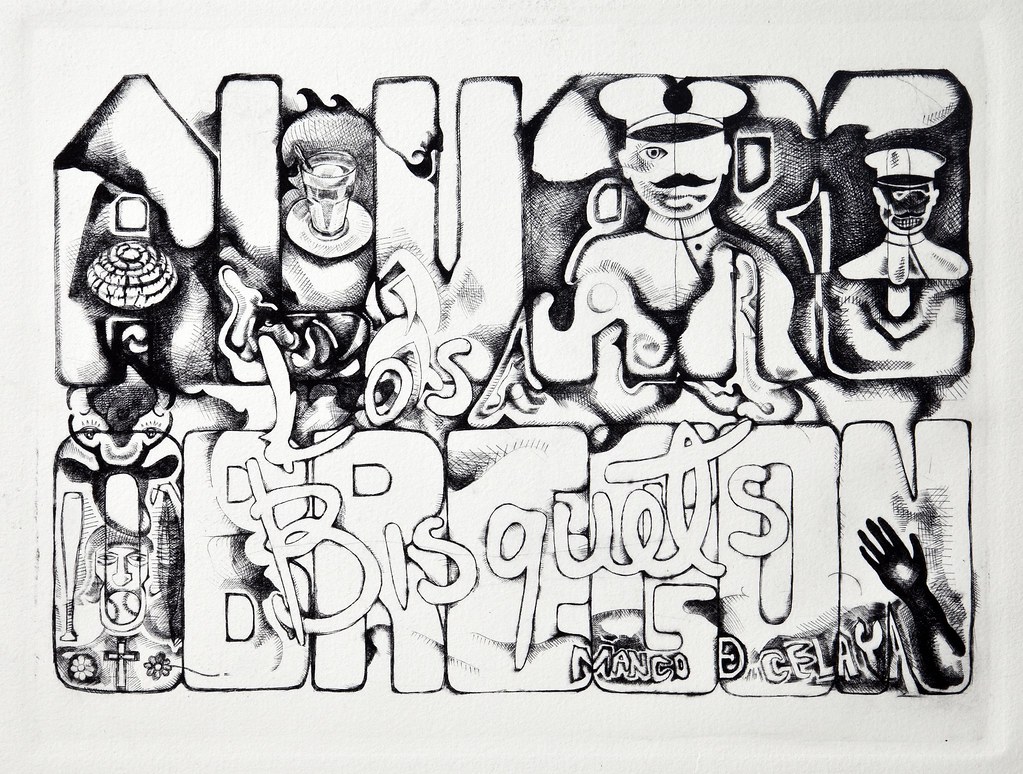 ALVARO
Los
OBREGON
Bisquets
MANCO DE CELAYA